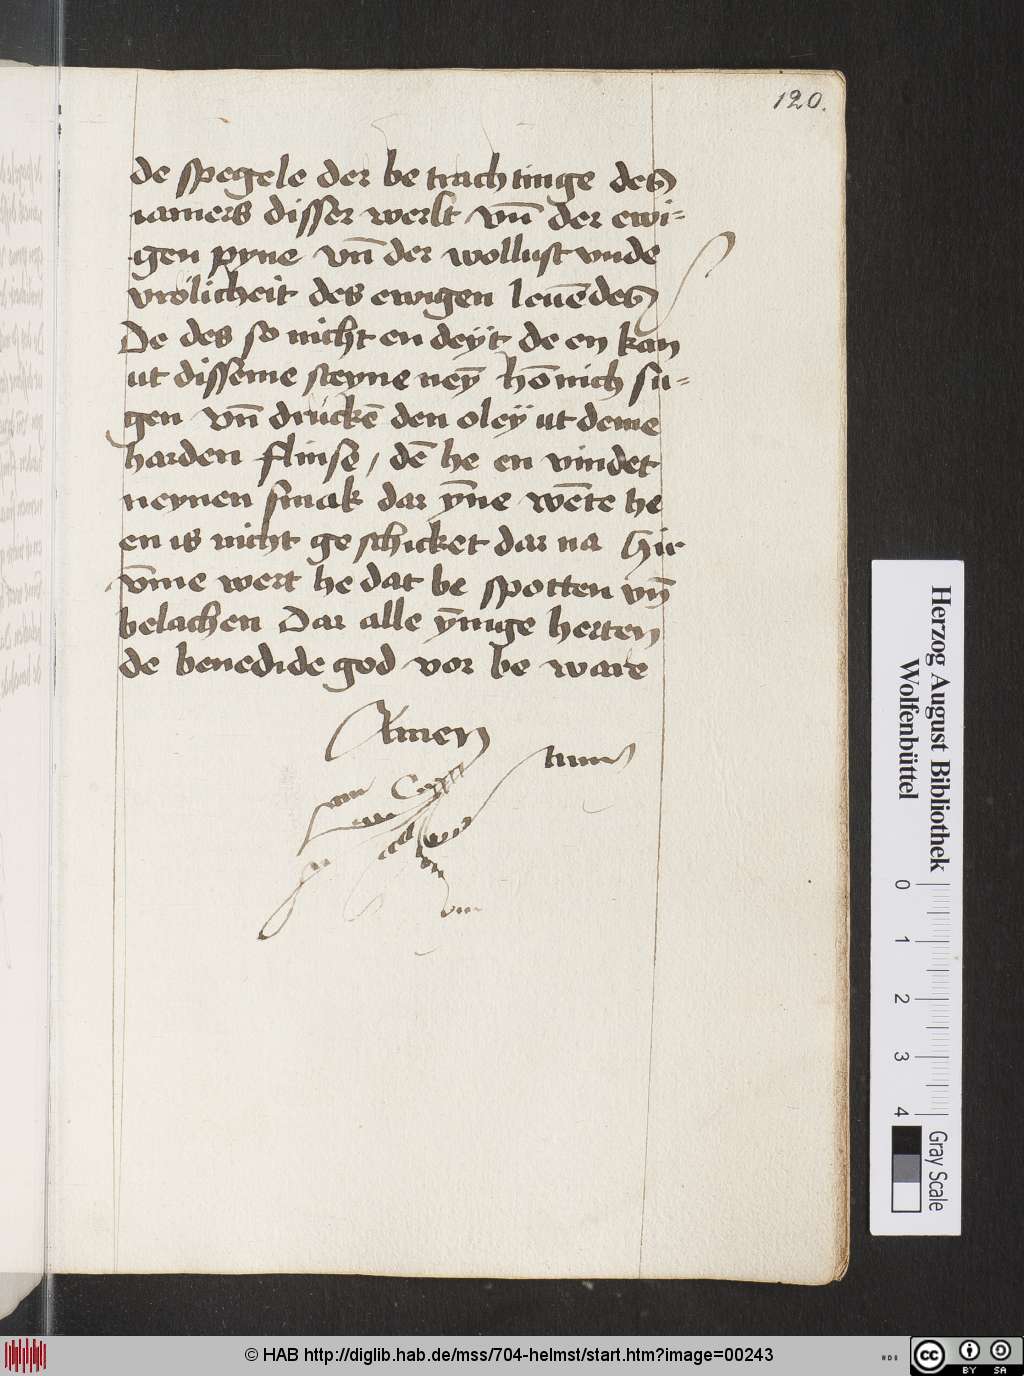 120.
de spegele der be trachtinge des
iamers disser werlt vn̄ der ewi=
gen pyne vn̄ der wollust vnde
vrolicheit des ewigen leuēdes
De des so nicht en deÿt de en kan
ut disseme steyne neȳ hōnich su=
gen vn̄ drückē den oleÿ ut deme
harden flinse / dē he en vindet
neynen smak dar ȳne wēte he
en is nicht ge schicket dar na Hir
v̄me wert he dat be spotten vn̄
belachen Dar alle ȳnige herten
de benedide god vor be ware
Amen
Herzog August Bibliothek
Wolfenbüttel
0 1 2 3 4
Gray Scale
© HAB http://diglib.hab.de/mss/704-helmst/start.htm?image=00243
cc BY SA